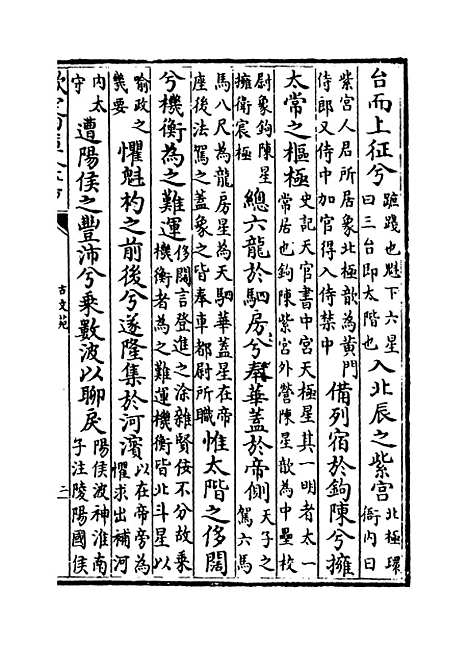 台而上征兮蹠踐也魁下六星曰三台即太階也入北辰之紫宫北極環衙内曰
紫宫人君所居象北極歆為黄門侍郎又侍中加官得入侍禁中備列宿於鉤陳兮擁
太常之樞極史記天官書中宫天極星其一明者太一常居也鉤陳紫宫外營陳星歆為中壘校
尉象鉤陳星擁衛宸極總六龍於駟房兮奉華蓋於帝側天子之駕六馬
馬八尺為龍房星為天駟華蓋星在帝座後法駕之蓋象之皆奉車都尉所職惟太階之侈闊
兮機衡為之難運侈闊言登進之涂雜賢佞不分故乘機衡者為之難運機衡皆北斗星以
喻政之機要懼魁杓之前後兮遂隆集於河濱以在帝旁為懼求出補河
内太守遭陽侯之豐沛兮乘數波以聊戾陽侯波神淮南子注陵陽國侯
古文苑
二